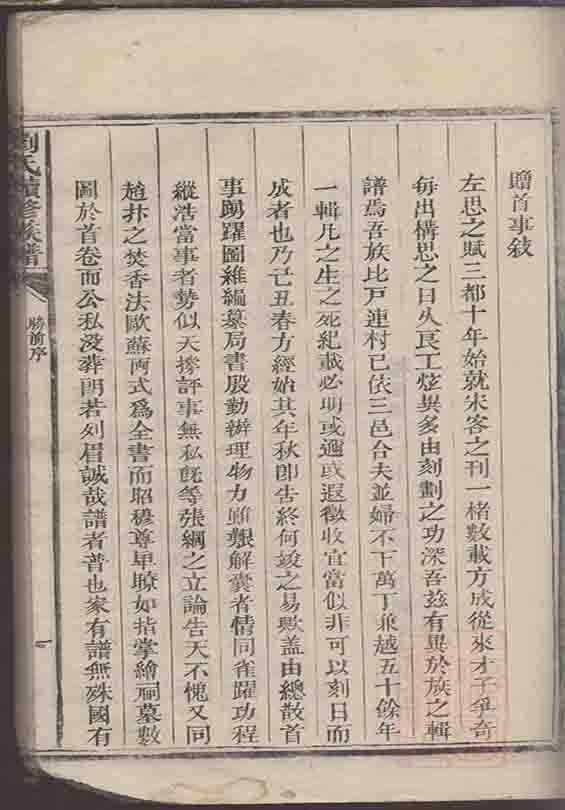 贈首事敍
左思之賦三都十年始就宋客之刊一楮數載方成從來才子爭奇
每出構思之日久良工炫異多由刻劃之功深吾玆有異於族之輯
譜焉吾族比戸連村已依三邑合夫並婦不下萬丁兼越五十餘年
一輯凡之生之死紀載必明或邇或遐徵收宜當似非可以刻日而
成者也乃己丑春方經始其年秋卽告終何竣之易歟盖由總散首
事踴躍圖維編纂局書殷勤辦理物力雖艱解囊者情同雀躍功程
縱浩當事者勢似天撐評事無私旣等張綱之立論告天不愧又同
趙抃之焚香法歐蘇兩式爲全書而昭穆尊卑瞭如指掌繪祠墓數
圖於首卷而公私没葬朗若列眉誠哉譜者普也家有譜無殊國有
劉氏續修族譜
勝前序
一